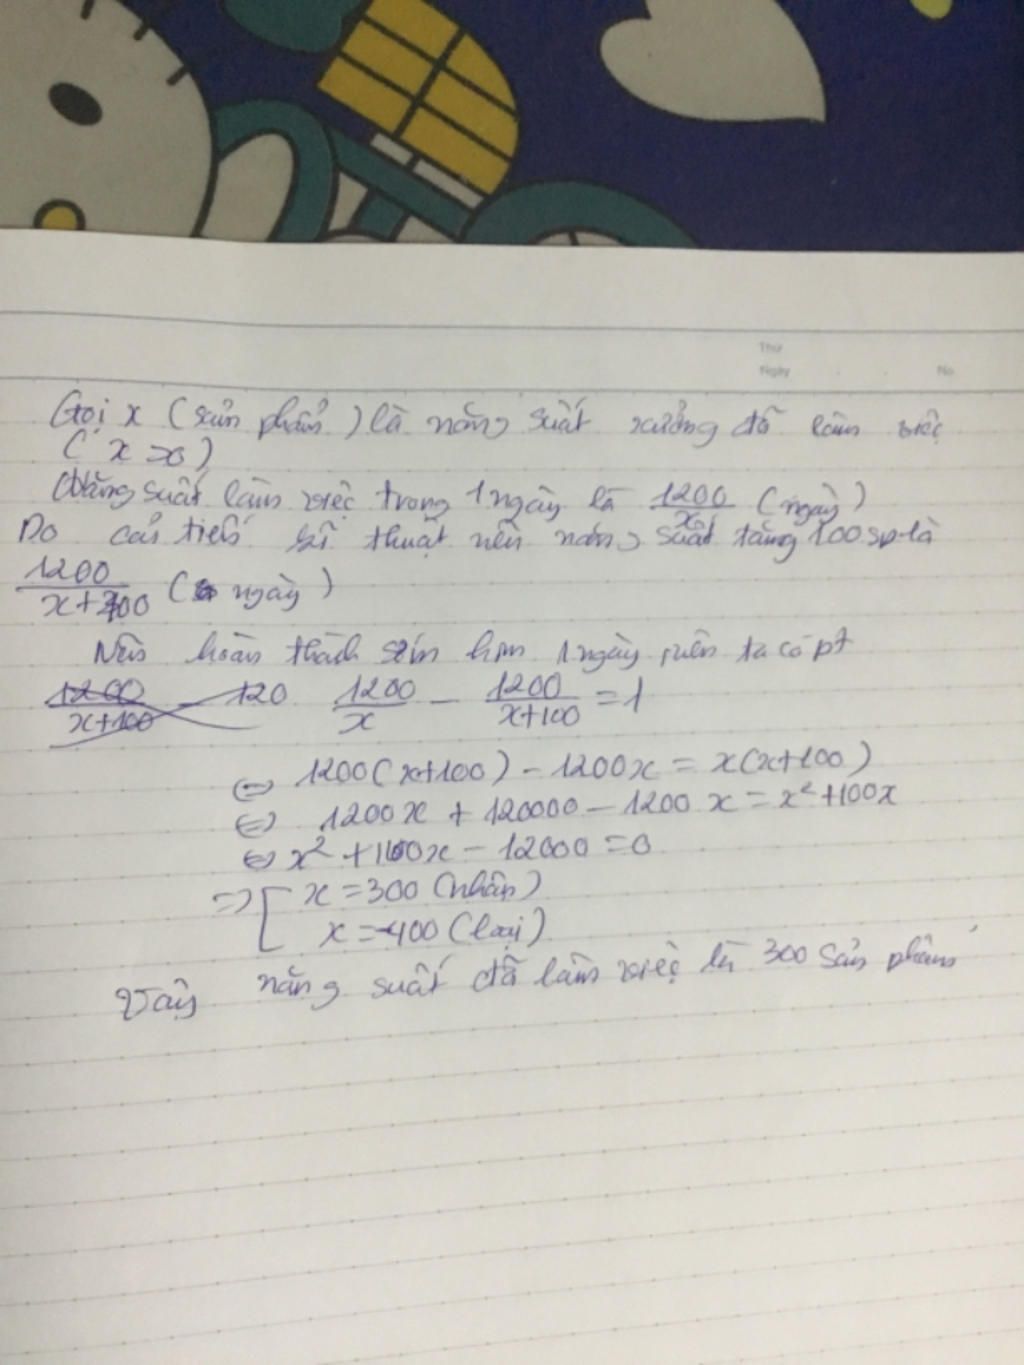 Thứ
Ngày No
Gọi x (sản phẩm) là năng suất xưởng đã làm việc
(x > 0)
Năng suất làm việc trong 1 ngày là 1200/x (ngày)
Do cải tiến kĩ thuật nên năng suất tăng 100 sp là
1200/(x+100) (ngày)
Nên hoàn thành sớm hơn 1 ngày nên ta có pt
1200/x - 1200/(x+100) = 1
⇔ 1200(x+100) - 1200x = x(x+100)
⇔ 1200x + 120000 - 1200x = x² + 100x
⇔ x² + 100x - 12000 = 0
⇒ [ x = 300 (nhận)
x = -400 (loại)
Vậy năng suất đã làm việc là 300 sản phẩm